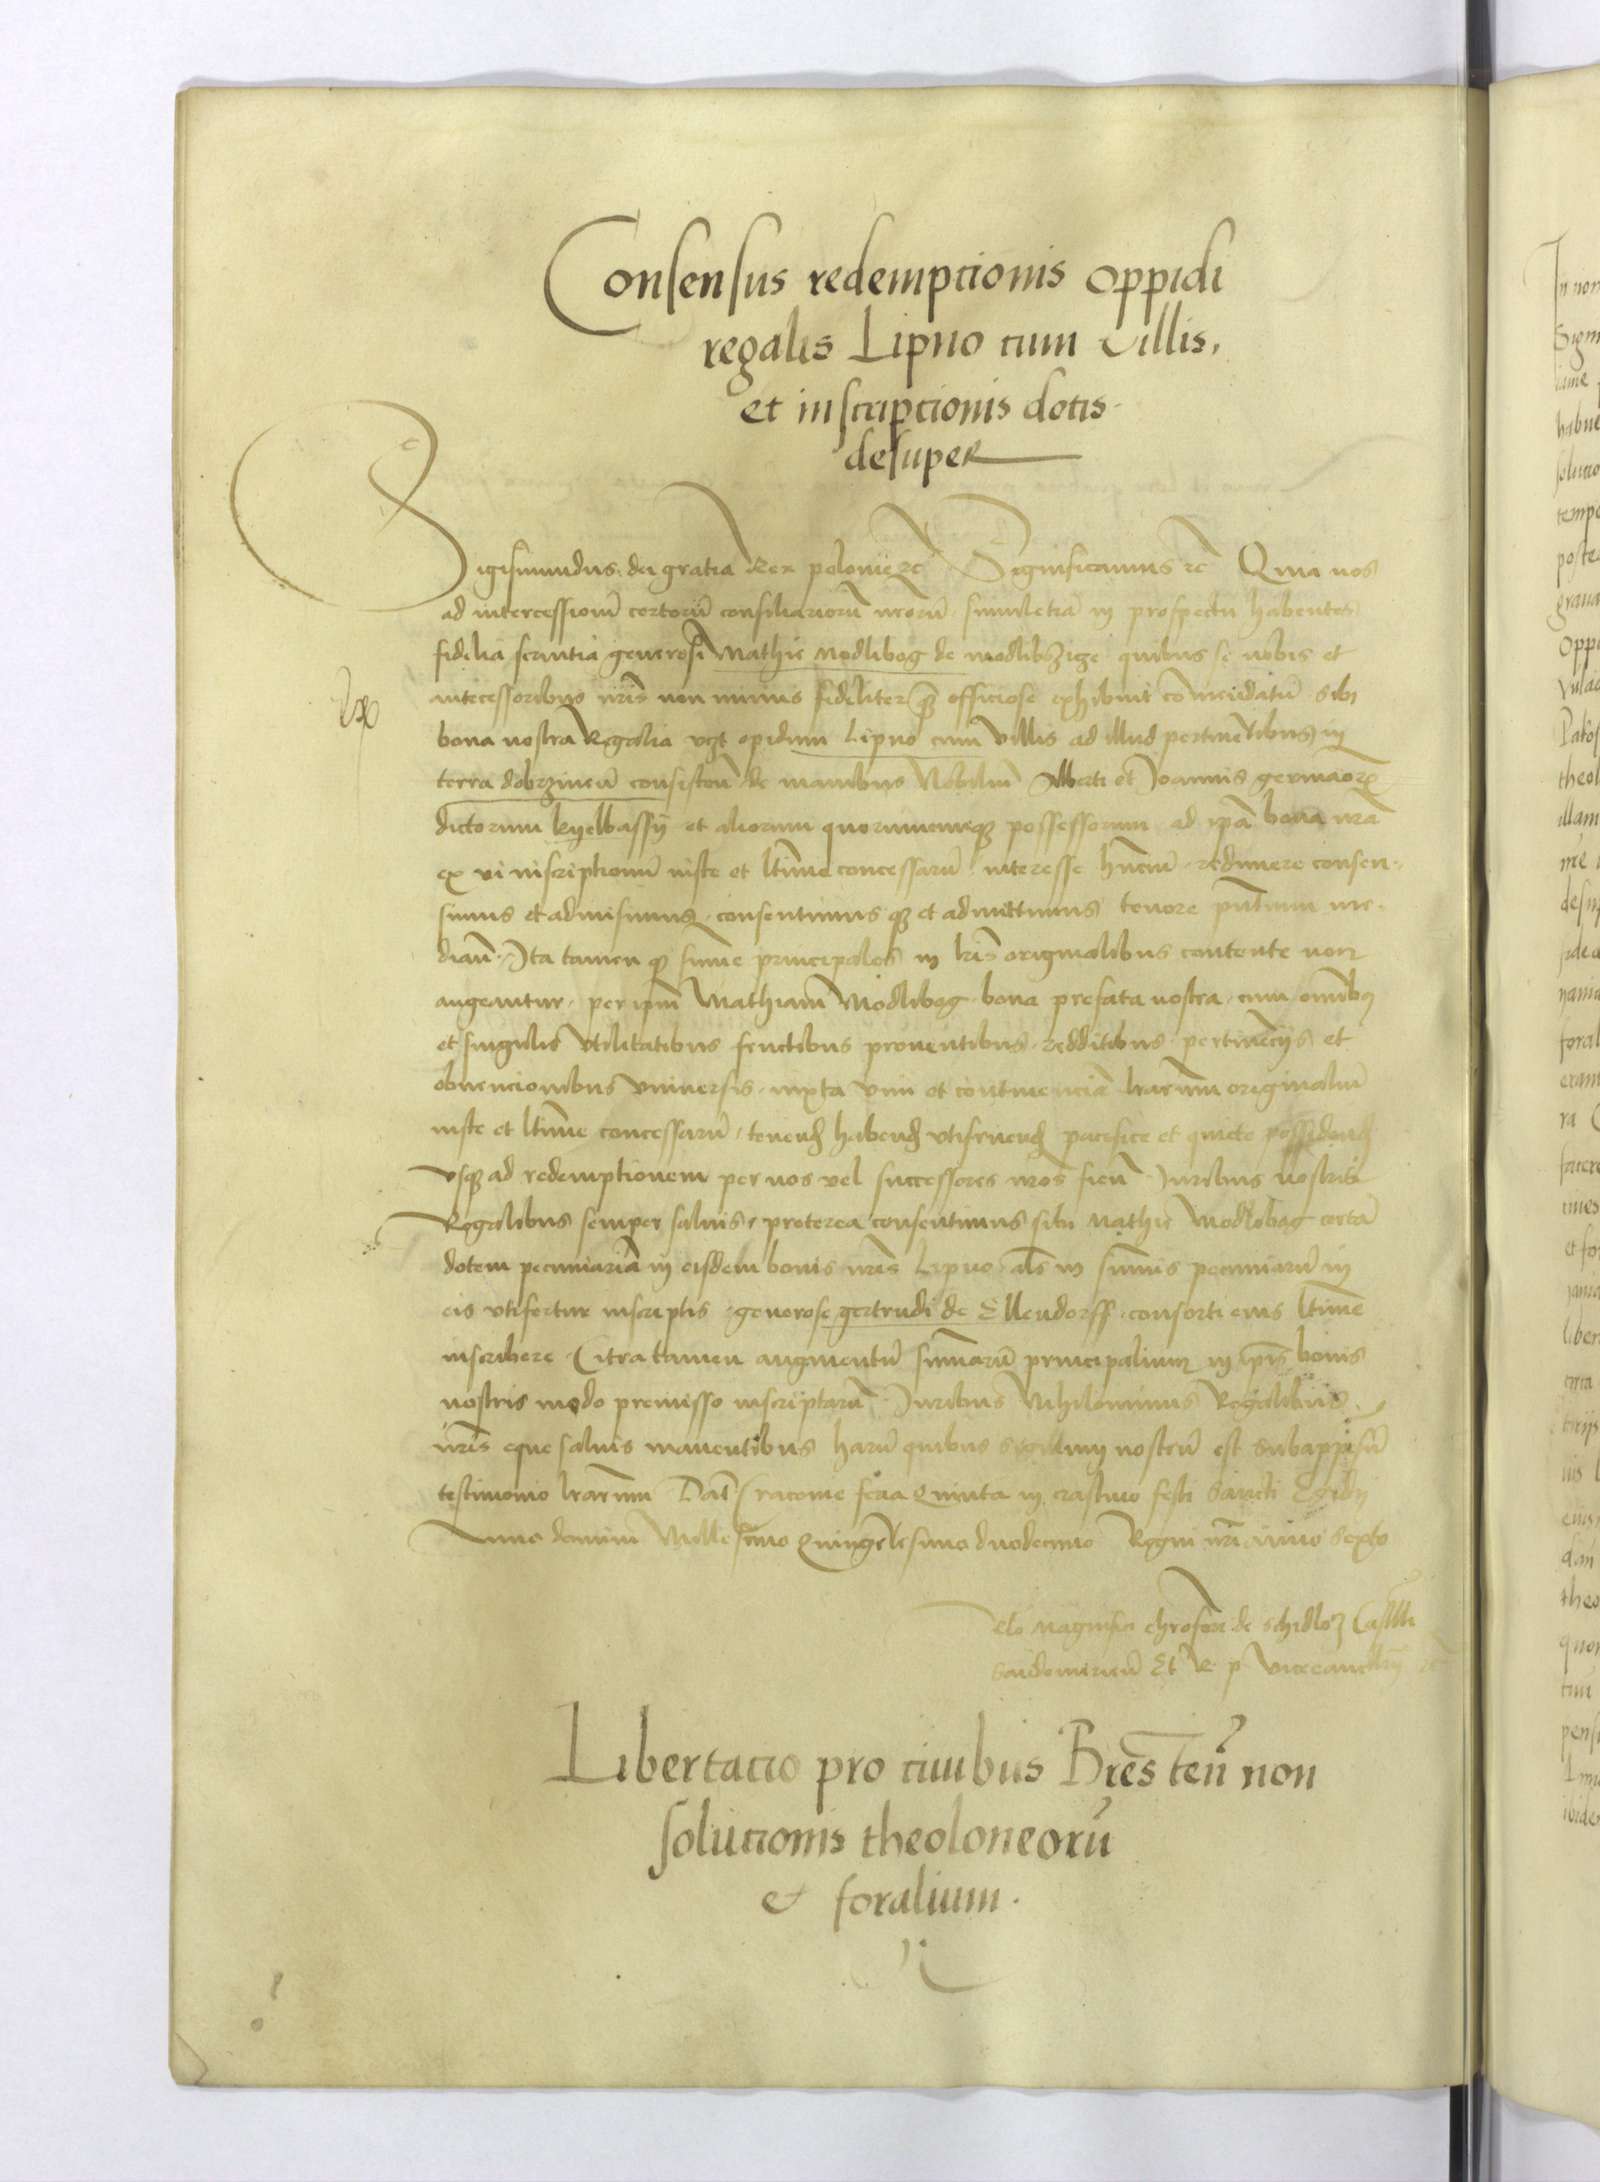 Consensus redemptionis oppidi
regalis Lipno cum villis,
et inscriptionis dotis
desuper
Sigismundus dei gratia Rex polonie rc Significamus rc Quia nos
ad intercessionē certorū consiliariorū nrorū simuletiā in prospectu habentes
fidelia servitia generosi Mathie Modlibog de modlibozicze quibus se nobis et
antecessoribus nris non minus fideliter qz officiose exhibuit comendatū sibi
bona nostra Regalia vzt opidum Lipno cum villis ad illud pertinētibus in
terra dobrzineñ consisteñ de manibus Nobiliū Alberti et Joannis germanorz
dictorum kyelbassy et aliorum quorumcunqz possessorum ad ipā bona nrā
ex vi inscriptionū iuste et ltime concessarū interesse hñtium redimere consen-
simus et admisimus consentimus qz et admittimus tenore pñtium me-
diañ Ita tamen qz sume principales in lris originalibus contente non
augeantur per ipm Mathiam Modlibog bona prefata nostra cum omībus
et singulis vtilitatibus fructibus proventibus redditibus pertinēciis et
obvencionibus vniversis iuxta vim et continenciā lrarum originaliū
iuste et ltime concessarū tenend habend vtifruend pacifice et quiete possidend
vsqz ad redemptionem per nos vel successores nros fieñ Iuribus nostris
Regalibus semper salvis preterea consentimus sibi Mathie Modlobog certā
dotem pecuniariā in eisdem bonis nris Lipno als in sumis pecuniarū in
eis vtifertur inscriptis generose gertrudi de Ellendorff consorti eius ltime
inscribere Citra tamen augmentū sumarū principalium in ipis bonis
nostris modo premisso inscriptarū Iuribus Nihilominus Regalibus
nris eque salvis manentibus harū quibus sigillum nostrū est subappēsū
testimonio lrarum Dat Cracovie feria Quinta in crastino festi Sancti Egidii
Anno domini Millesimo Quingētesimo duodecimo Regni nri anno Sexto
Rela Magnifici de Schidlo Castell
Sandomirieñ Et R p vicecancellarii
Libertacio pro civibus Bresteñ non
solucionis theoloneorū
et foralium.